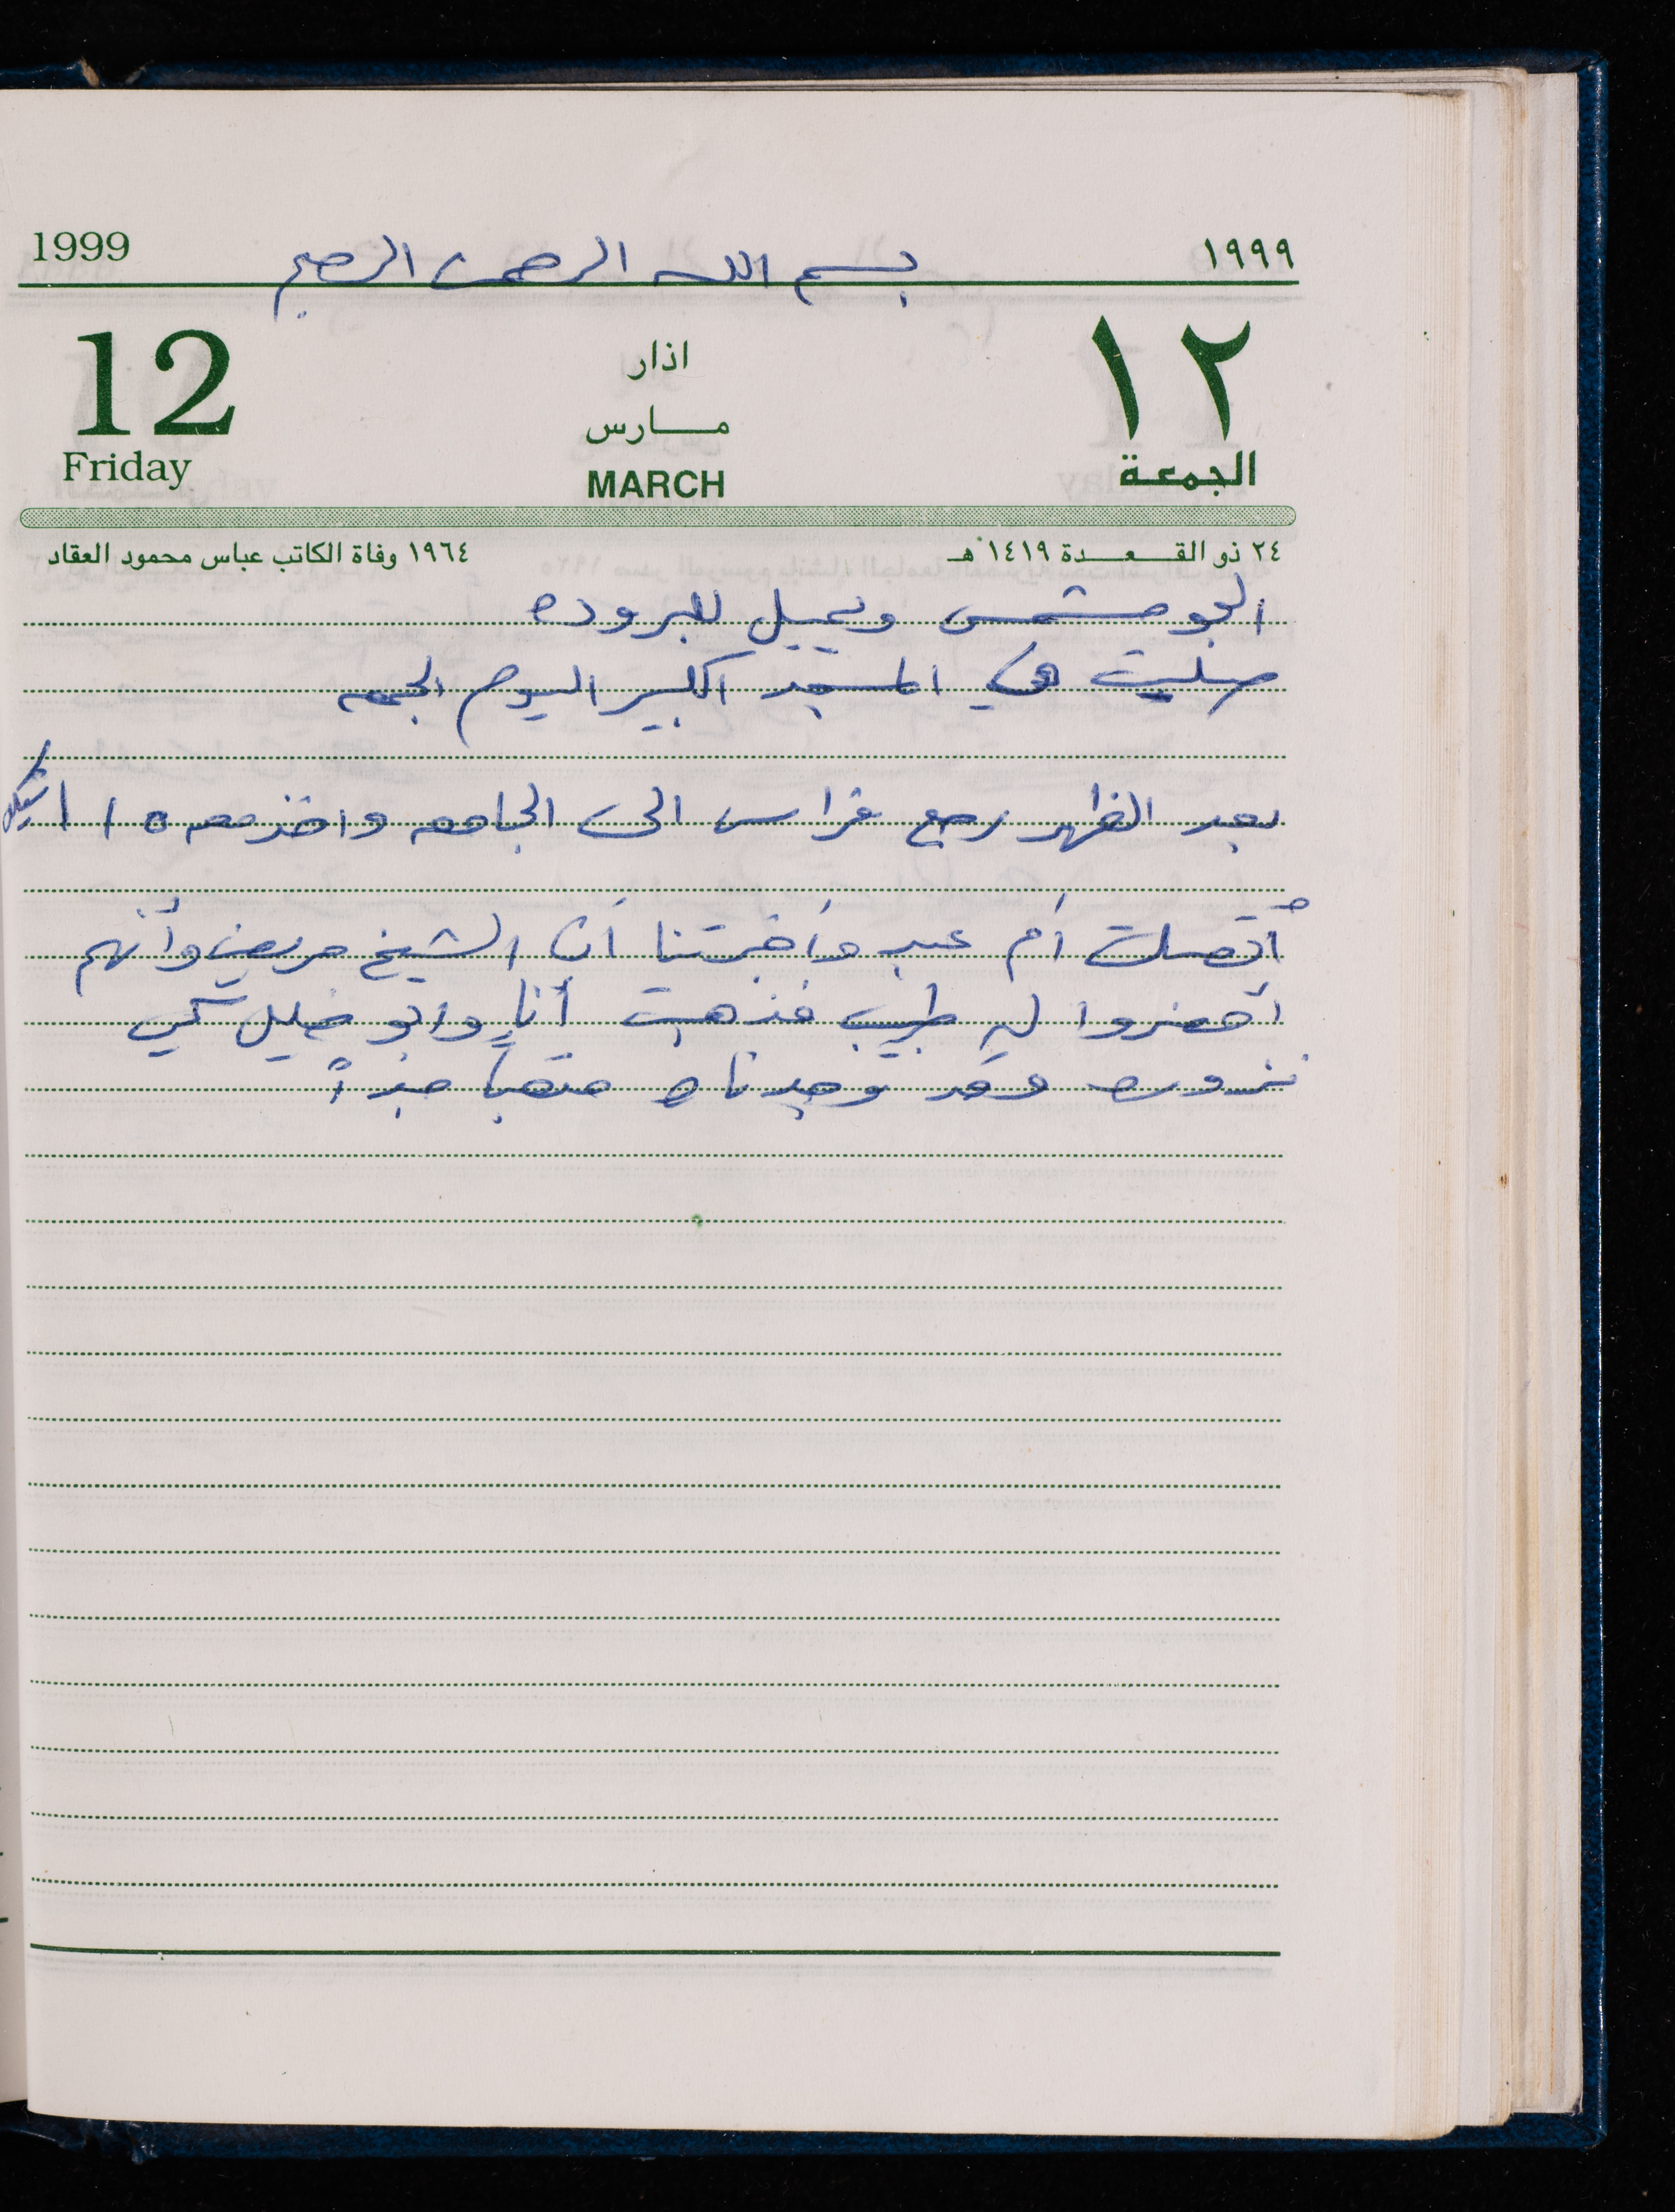 1999 بسم الله الرحمن الرحيم ١٩٩٩
12 اذار ١٢
مارس
Friday MARCH الجمعة
٢٤ ذو القعدة ١٤١٩ هـ ١٩٦٤ وفاة الكاتب عباس محمود العقاد
الجو مشمس ويميل للبروده
صليت في المسجد الكبير اليوم الجمعه
بعد الظهر رجع فراس الى الجامعه واخذ معه ١٥ شيكل
أتصلت أم عبد وأخبرتنا أن الشيخ مريض وأنهم
أحضروا له طبيب فذهبت أنا وابو خليل لكي
نزوره وقد وجدناه متعباً جداً